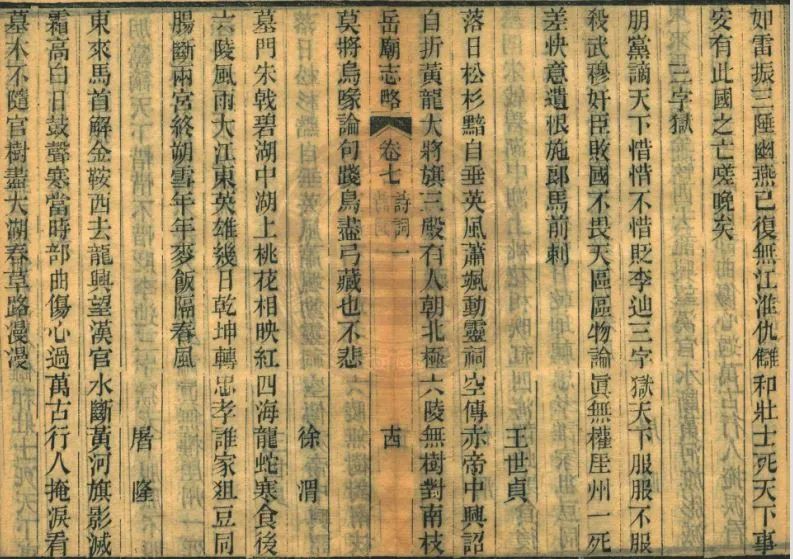 如雷振三陲幽燕已復無江淮仇讎和壯士死天下事
安有此國之亡嗟晚矣
三字獄
朋黨謫天下惜惜不惜貶李迪三字獄天下服服不服
殺武穆奸臣敗國不畏天區區物論眞無權厓州一死
差快意遺恨施郎馬前刺
王世貞
落日松杉黯自垂英風蕭颯動靈祠空傳赤帝中興詔
自折黃龍大將旗三殿有人朝北極六陵無樹對南枝
岳廟志略 卷七 詩詞一 十四
莫將鳥喙論句踐鳥盡弓藏也不悲
徐渭
墓門朱戟碧湖中湖上桃花相映紅四海龍蛇寒食後
六陵風雨大江東英雄幾日乾坤轉忠孝誰家俎豆同
腸斷兩宮終朔雪年年麥飯隔春風
屠隆
東來馬首解金鞍西去龍興望漢官水斷黃河旗影滅
霜高白日鼓聲寒當時部曲傷心過萬古行人掩淚看
墓木不隨官樹盡大湖春草路漫漫